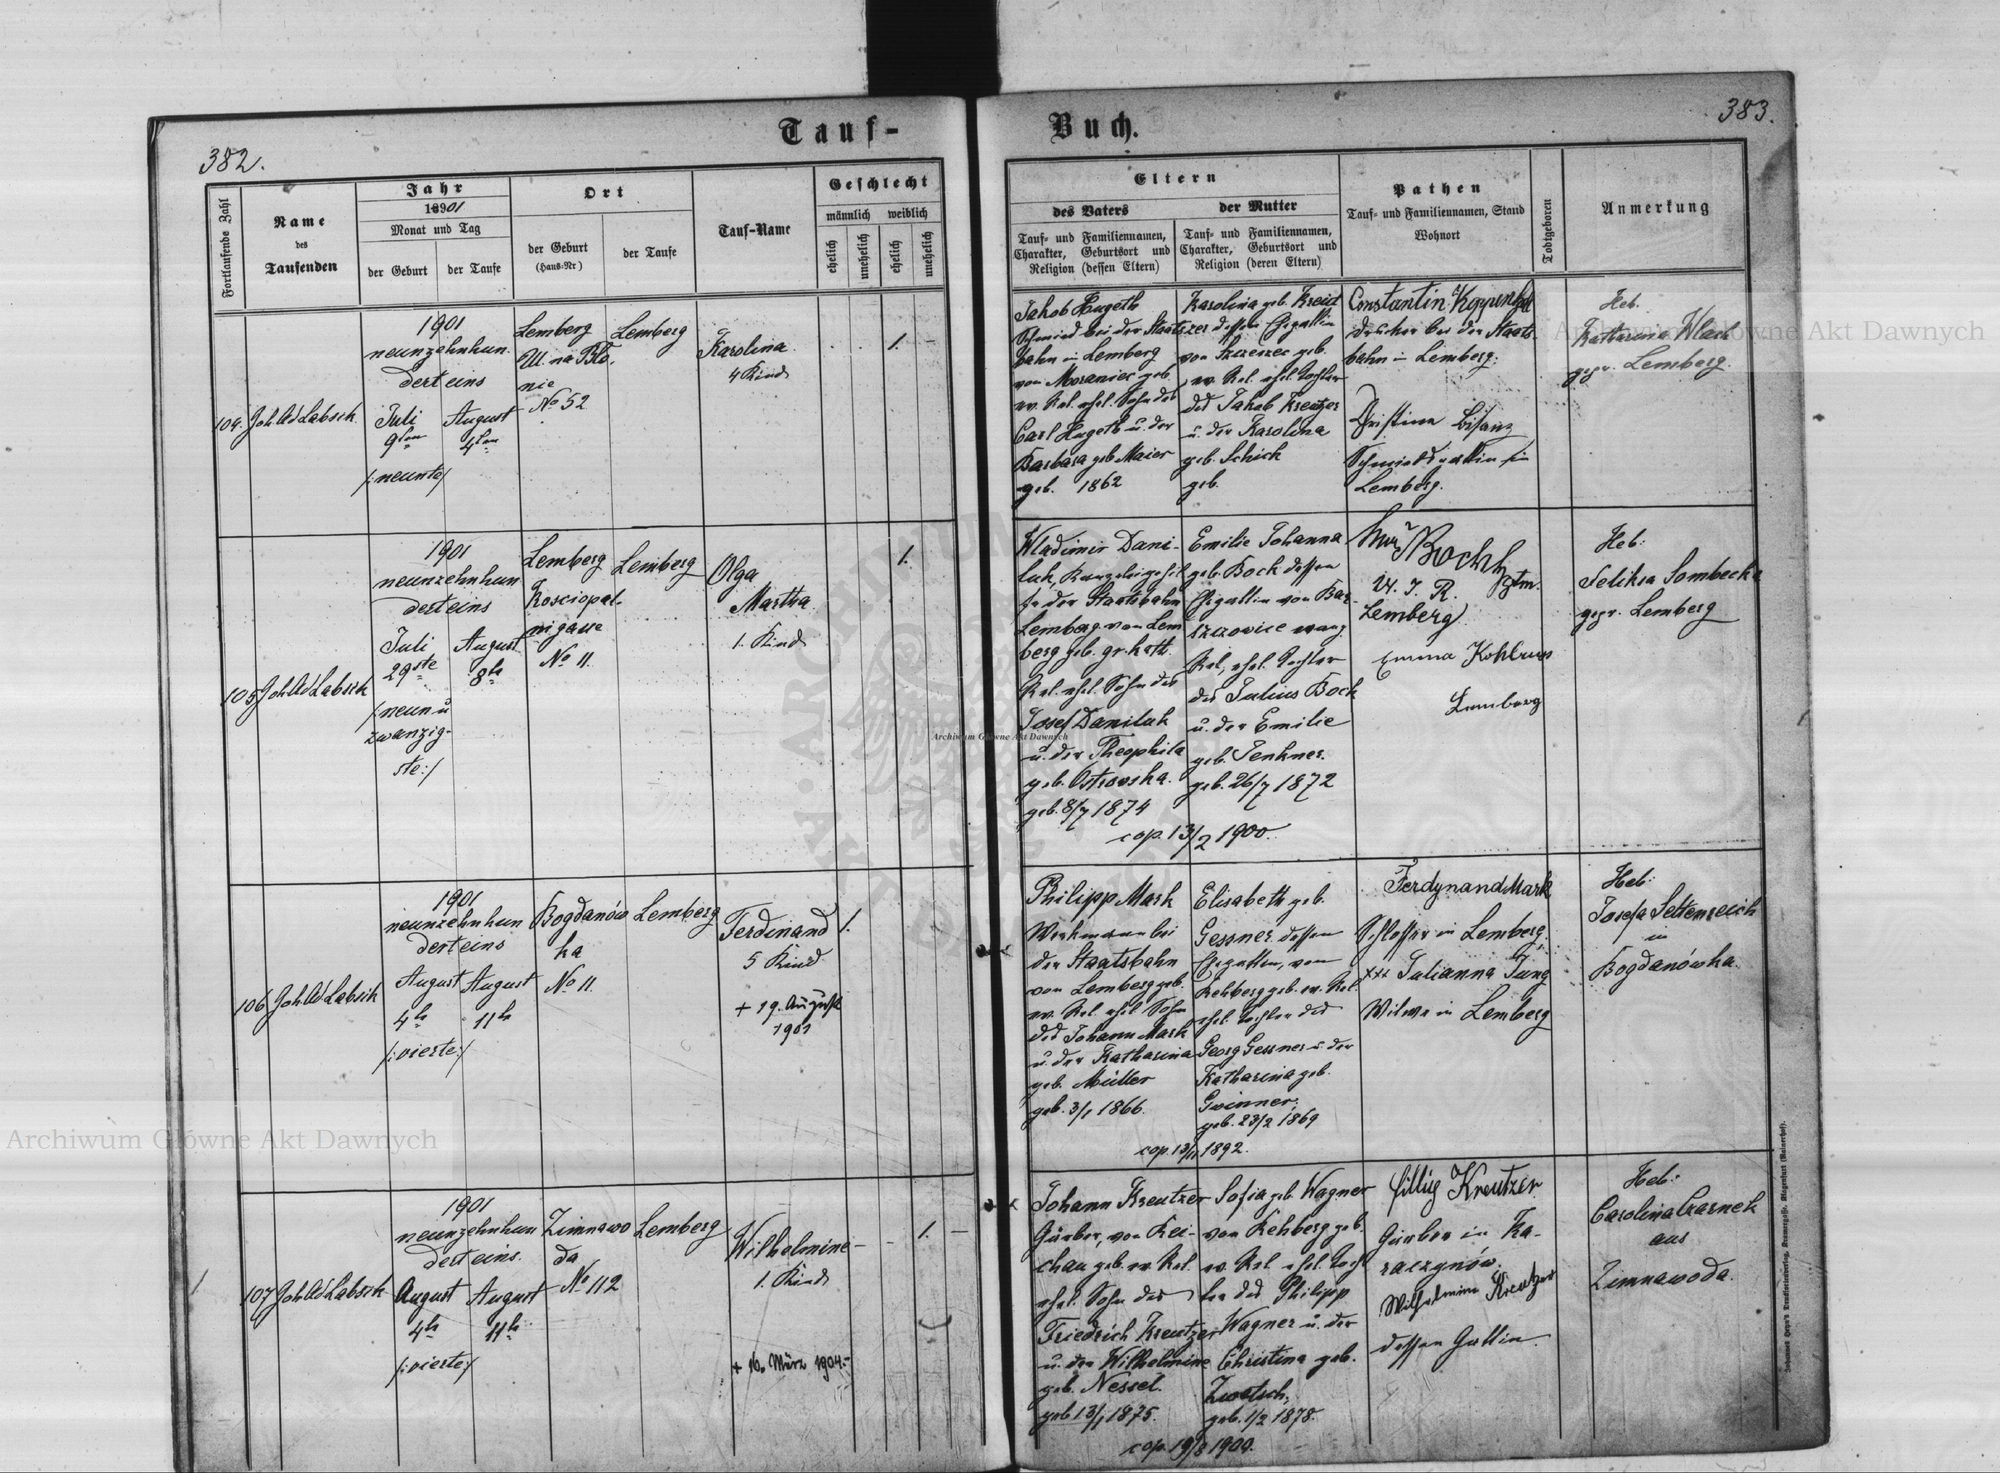 382.
383.
Tauf-
Buch.
Fortlaufende Zahl
Name
des
Taufenden
Jahr
1901
Monat und Tag
der Geburt
der Taufe
Ort
der Geburt
(Haus-Nr)
der Taufe
Tauf-Name
Geschlecht
männlich
weiblich
ehelich
unehelich
ehelich
unehelich
Eltern
des Vaters
Tauf- und Familiennamen,
Charakter, Geburtsort und
Religion (dessen Eltern)
der Mutter
Tauf- und Familiennamen,
Charakter, Geburtsort und
Religion (deren Eltern)
Pathen
Tauf- und Familiennamen, Stand
Wohnort
Todtgeboren
Anmerkung
104.
Joh Ad Labsik
1901
neunzehnhun-
dert eins
Juli
9ten
/:neunte/
August
4ten
Lemberg
Ul. na Blo,
nie
No 52
Lemberg
Karolina
4 Kind
1.
Jakob Hugeth
Schmied bei der Staats
bahn in Lemberg
von Moraniec geb.
ev. Rel. ehel. Sohn des
Carl Hugeth u. der
Barbara geb Maier
geb. 1862
Karolina geb. Kreut
zer dessen Ehegattin
von Szczerzec geb.
ev. Rel. ehel. Tochter
des Jakob Kreutzer
u. der Karolina
geb. Schick
geb.
Constantin
bei der Staats
bahn in Lemberg.
Christina Bisanz
Schmiedsgattin in
Lemberg.
Heb.
Katharina Wlach
gepr. Lemberg.
105
Joh Ad Labsik
1901
neunzehnhun
dert eins
Juli
29ste
/:neun u
zwanzig-
ste:/
August
8te
Lemberg
Kosciopal-
nigasse
No 11.
Lemberg
Olga
Martha
1. Kind
1.
Wladimir Dani-
luk, Kanzleigehil
fe der Staatsbahn
Lemberg von Lem
berg geb. gr. kath
Rel. ehel. Sohn des
Josef Daniluk
u. der Theophila
geb. Ostrowska.
geb. 8/7 1874
Emilie Johanna
geb. Bock dessen
Ehegattin von Bar-
szczowice evang
Rel, ehel. Tochter
des Julius Bock
u. der Emilie
geb. Jenkner.
geb. 26/7 1872
cop. 13/2 1900.
Bockh
Lemberg
Emma
Lemberg
Heb:
Feliksa Sombecka
gepr. Lemberg
106
Joh Ad Labsik
1901
neunzehnhun
dert eins
August
4te
/:vierte:/
August
11te
Bogdanów
ka
No 11.
Lemberg
Ferdinand
5 Kind
+ 19. August
1901
1.
Philipp Mark
Werkmann bei
der Staatsbahn
von Lemberg geb.
ev. Rel. ehel Sohn
des Johann Mark
u der Katharina
geb. Müller
geb. 3/1 1866.
Elisabeth geb.
Gessner dessen
Ehegattin, von
Rehberg geb. ev. Rel.
ehel. Tochter des
Georg Gessner u der
Katharina geb.
Gwinner.
geb. 23/2 1869
cop. 13/11 1892.
Ferdynand Mark
Schlosser in Lemberg.
xxx Julianna Jung
Witwe in Lemberg
Heb:
Josefa Settenreich
in
Bogdanówka.
107
Joh Ad Labsik
1901
neunzehnhun
dert eins.
August
4te
/:vierte:/
August
11te
Zimnawo
da
No 112
Lemberg
Wilhelmine
1. Kind
+ 16. März 1904.-
1.
Johann Kreutzer
Gärber, von Rei-
chau geb. ev. Rel.
ehel. Sohn des
Friedrich Kreutzer
u. der Wilhelmine
geb. Nessel.
geb 13/1 1875.
Sofia geb. Wagner
von Rehberg geb.
ev. Rel. ehel. Toch
ter des Philipp
Wagner u. der
Christina geb.
Zwetsch.
geb. 1/2 1878.
cop. 19/8 1900.
Fillip Kreutzer
Gärber in Ka-
raczynów.
Wilhelmine Kreutzer
dessen Gattin.
Heb:
Carolina Czarnek
aus
Zimnawoda.
Archiwum Główne Akt Dawnych
Archiwum Główne Akt Dawnych
Archiwum Główne Akt Dawnych